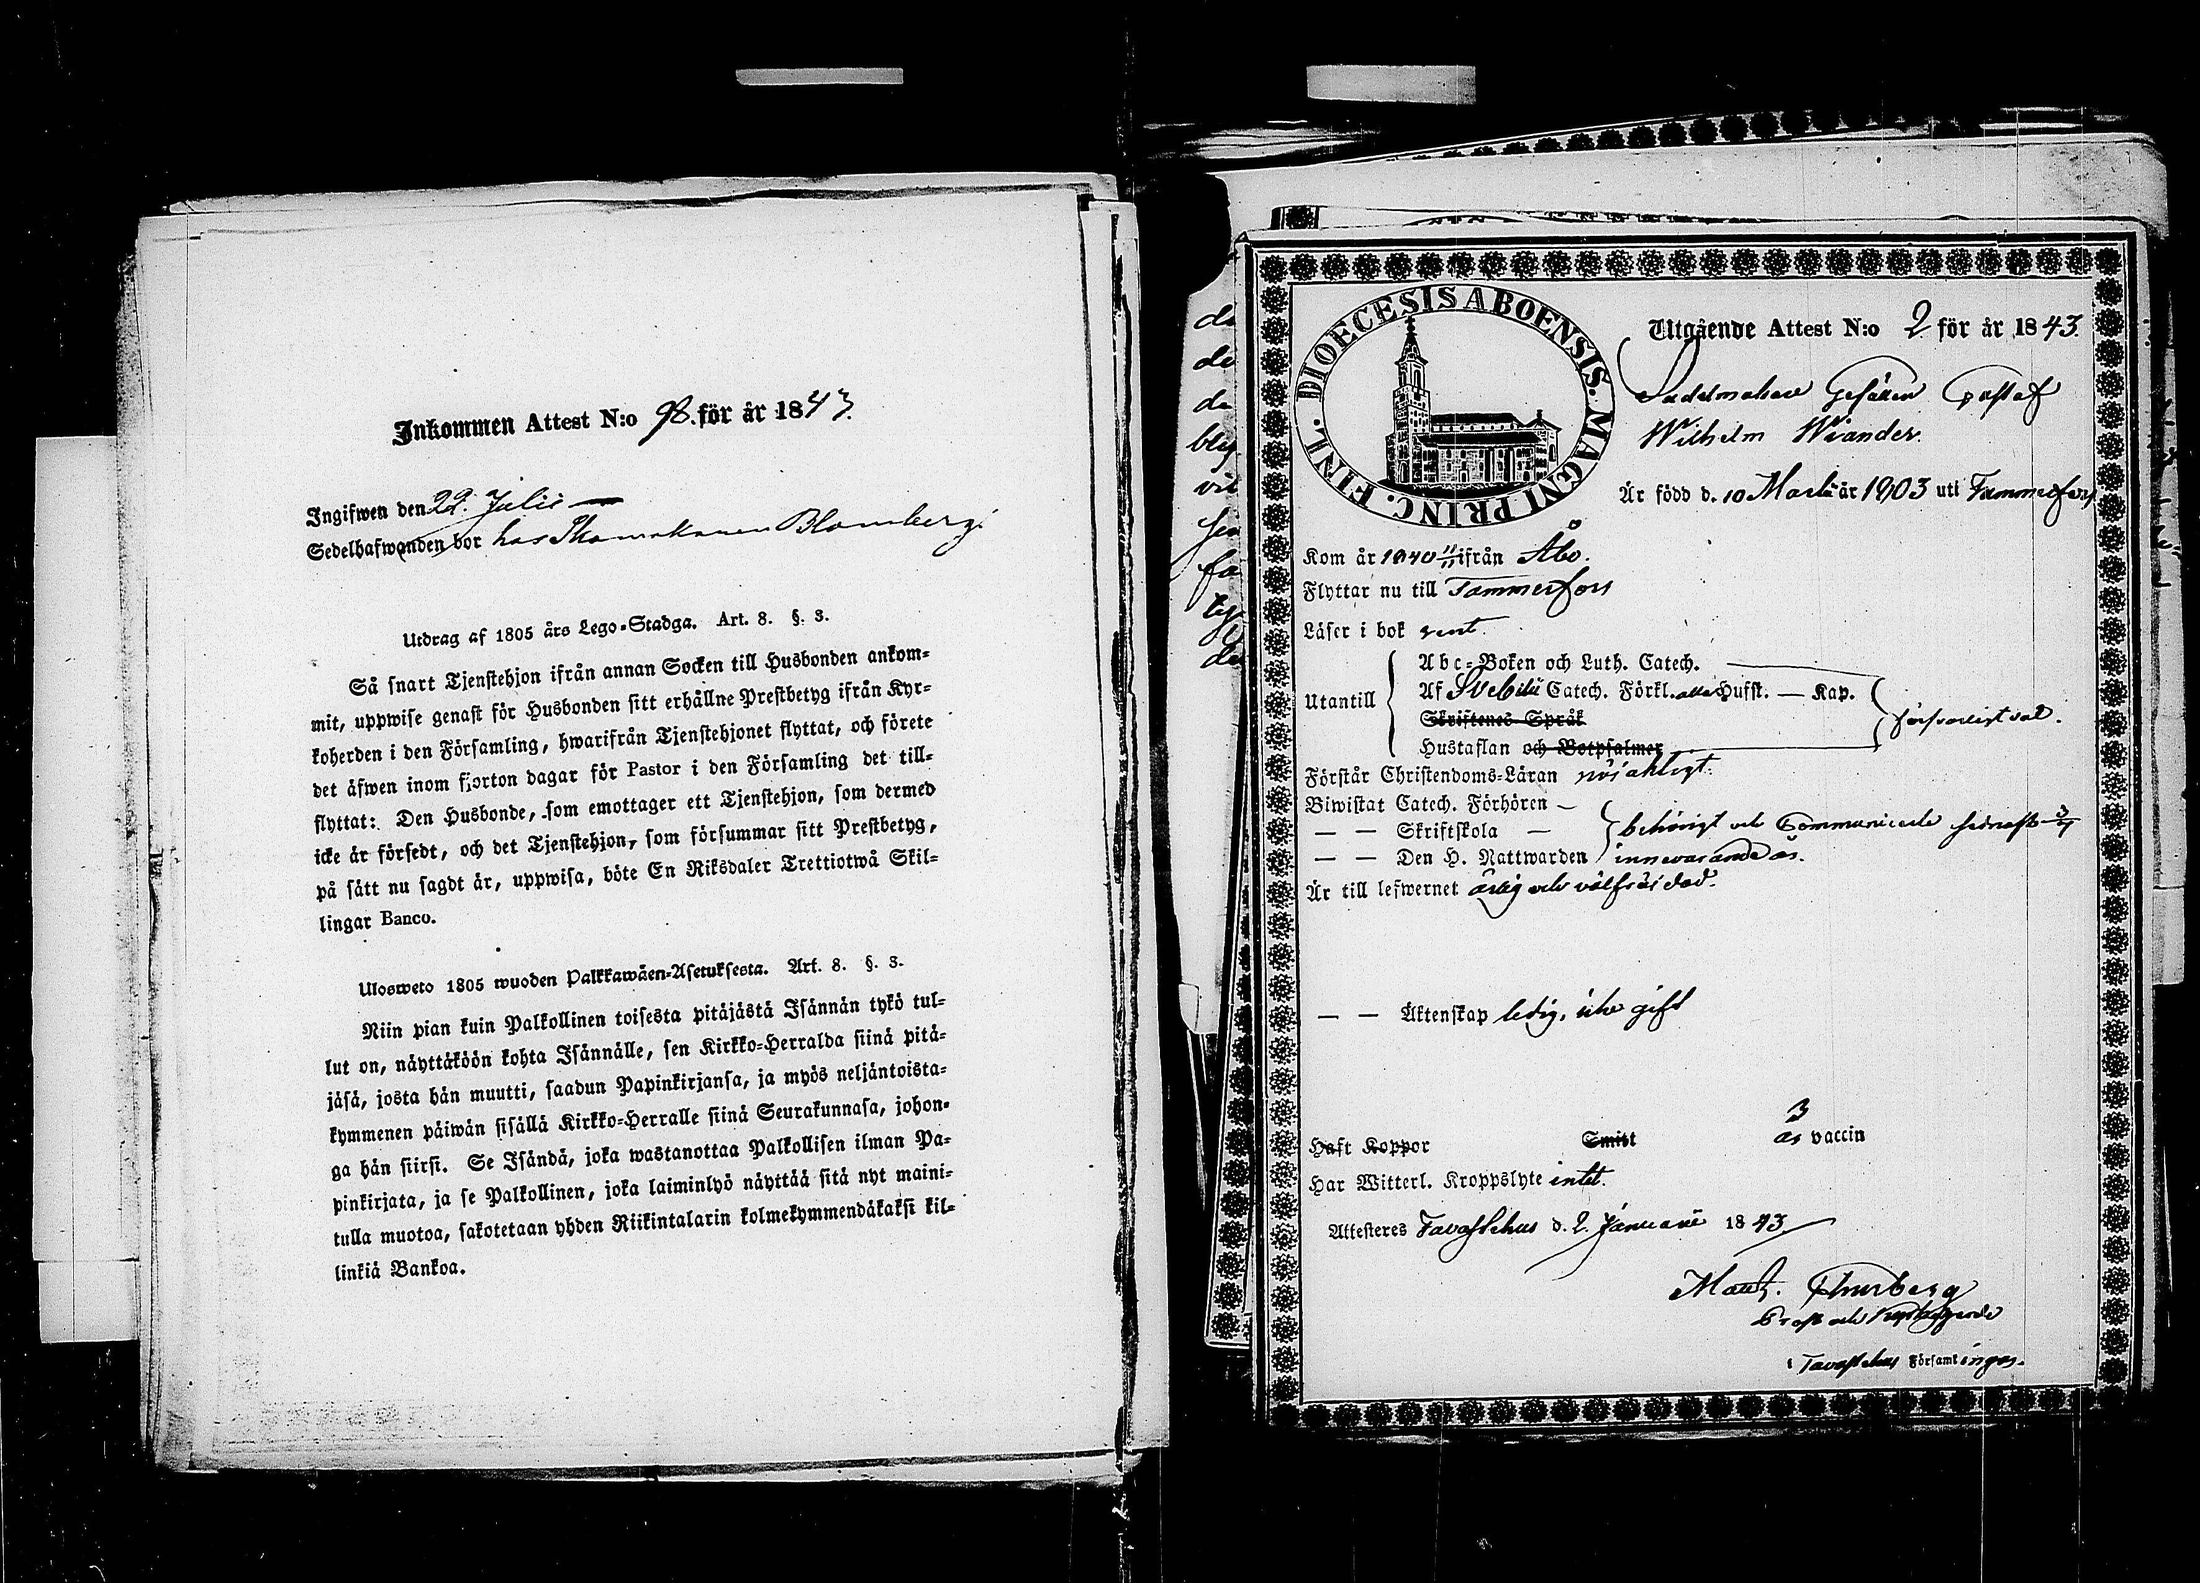 Inkommen Attest N:o 98. för år 1843.
Ingifwen den 22. Julii
Sedelhafwanden bor hos Skomakaren Blomberg
Utdrag af 1805 års Lego-Stadga. Art. 8. §. 3.
Så snart Tjenstehjon ifrån annan Socken till Husbonden ankom-
mit, uppwise genast för Husbonden sitt erhållne Prestbetyg ifrån Kyr-
koherden i den Församling, hwarifrån Tjenstehjonet flyttat, och förete
det äfwen inom fjorton dagar för Pastor i den Församling det till-
flyttat: Den Husbonde, som emottager ett Tjenstehjon, som dermed
icke är försedt, och det Tjenstehjon, som försummar sitt Prestbetyg,
på sätt nu sagdt är, uppwisa, böte En Riksdaler Trettiotwå Skil-
lingar Banco.
Ulosweto 1805 wuoden Palkkawäen-Asetuksesta. Art. 8. §. 3.
Niin pian kuin Palkollinen toisesta pitäjästä Isännän tykö tul-
lut on, näyttäköön kohta Isännälle, sen Kirkko-Herralda siinä pitä-
jäsä, josta hän muutti, saadun Papinkirjansa, ja myös neljäntoista-
kymmenen päiwän sisällä Kirkko-Herralle siinä Seurakunnasa, johon-
ga hän siirsi. Se Isändä, joka wastanottaa Palkollisen ilman Pa-
pinkirjata, ja se Palkollinen, joka laiminlyö näyttää sitä nyt maini-
tulla muotoa, sakotetaan yhden Riikintalarin kolmekymmendäkaksi kil-
linkiä Bankoa.
DIOECESIS ABOENSIS. MAGNI PRINC. FINL.
Utgående Attest N:o 2 för år 1843.
Sadelmakare Gesällen Gustaf
Wilhelm Wiander.
Är född d. 10 Martii år 1803 uti Tammerfors
Kom år 1840 11/11 ifrån Åbo.
Flyttar nu till Tammerfors
Läser i bok rent.
Utantill
Abc-Boken och Luth. Catech.
Af Svebilii Catech. Förkl. alla Hufst. — Kap.
Skriftenes Språk
Hustaflan och Botpsalmer
försvarligt väl.
Förstår Christendoms-Läran nöjaktigt.
Biwistat Catech. Förhören —
— — Skriftskola — behörigt och Communicerade sednast
— — Den H. Nattwarden innevarande år.
Är till lefwernet ärlig och välfräjdad.
— — Äktenskap ledig, icke gift
3
Haft Koppor Smitt är vaccin
Har Witterl. Kroppslyte intet.
Attesteres Tavastehus d. 2. Januarii 1843
Matth. Thurberg
Prost och Kyrkoherde
i Tavastehus Församlingar.